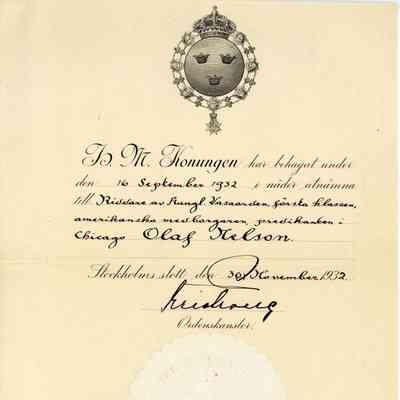 H. M. Konungen har behagat under
den 16 September 1932 i nåder utnämna
till Riddare av Kungl. Vasaorden, första klassen,
amerikanske medborgaren, predikanten i
Chicago Olaf Nelson.
Stockholms slott, den 30 November 1932.
Ordenskansler.